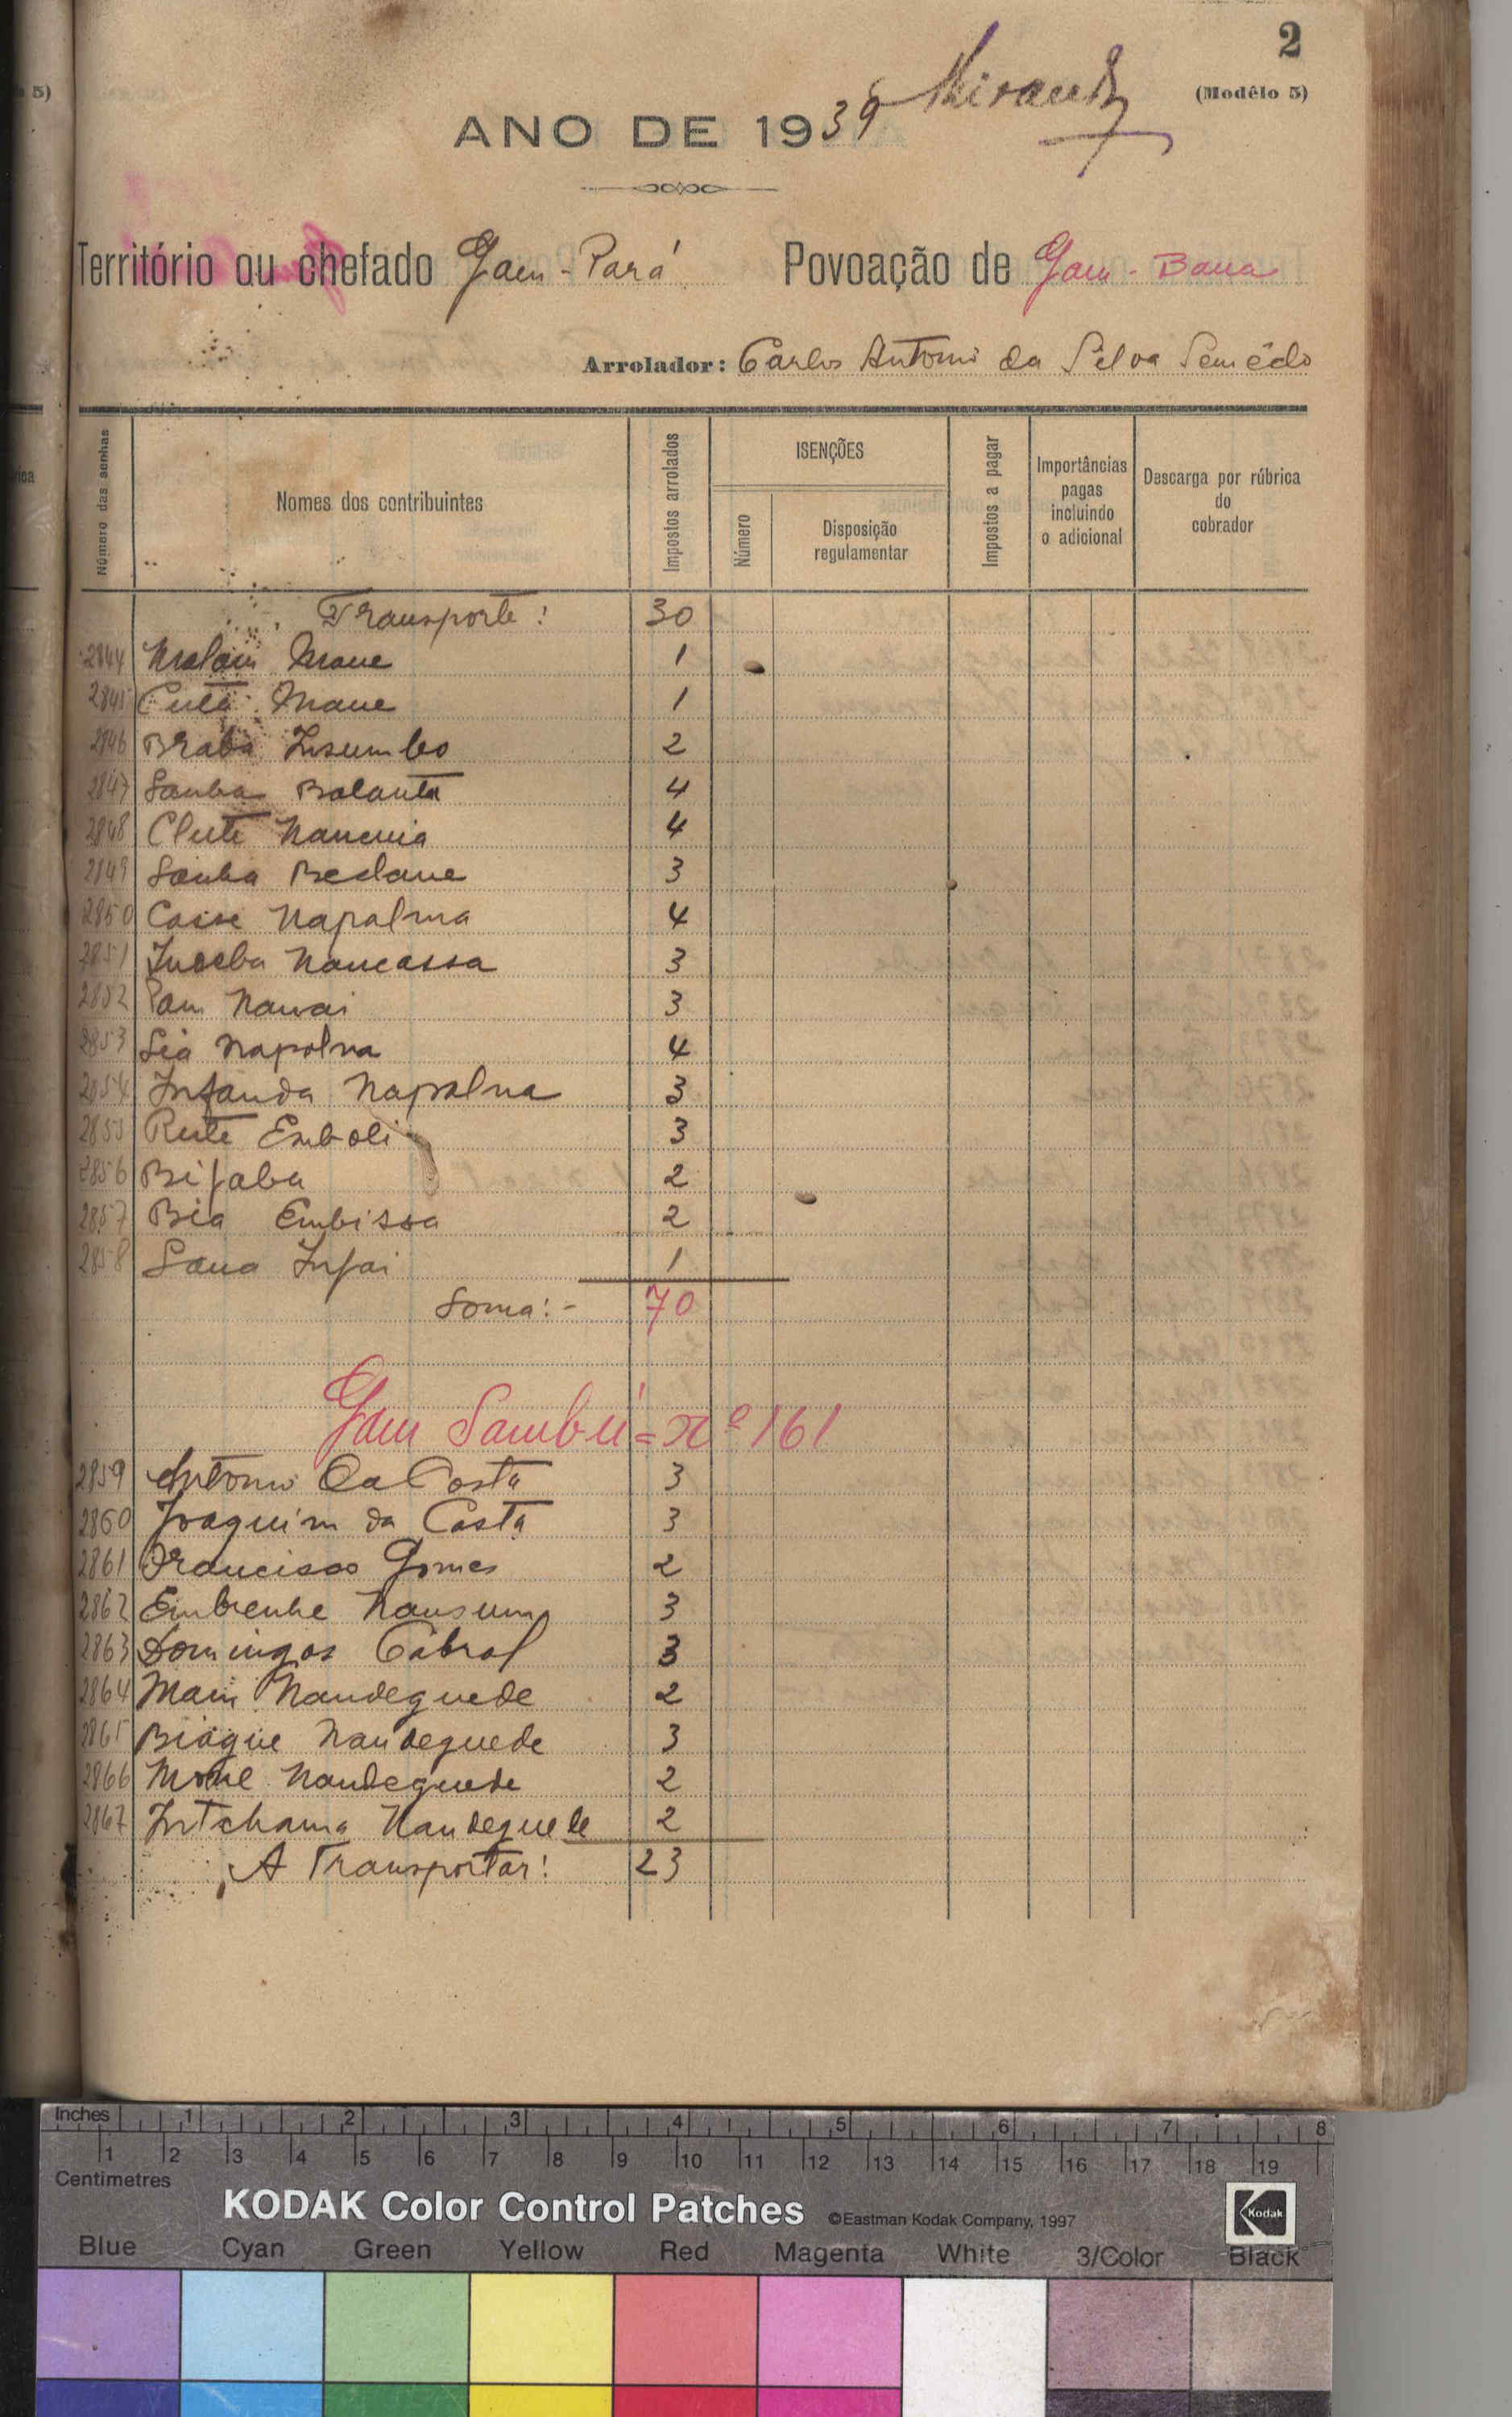 2
(Modêlo 5)
ANO DE 1939
Território ou chefado Gam-Pará Povoação de Gam-Bana
Arrolador: Carlos Antonio da Silva Semêdo
Número das senhas
Nomes dos contribuintes
Impostos arrolados
ISENÇÕES
Número
Disposição regulamentar
Impostos a pagar
Importâncias pagas incluindo o adicional
Descarga por rúbrica do cobrador
Transporte: 30
2844 Malam Mane 1
2845 Mane 1
2846 Braba Insumbo 2
2847 Sanha Balanta 4
2848 Clute 4
2849 Sanha 3
2850 Casse Napalna 4
2851 Nancassa 3
2852 3
2853 Sia Napalna 4
2854 Infanda Napalna 3
2855 Emboli 3
2856 Bifaba 2
2857 Bia Embissa 2
2858 Sana Infai 1
Soma:- 70
Gam Sambú = Nº 161
2859 Antonio Da Costa 3
2860 Joaquim da Costa 3
2861 Francisco Gomes 2
2862 Embenhe Nansum 3
2863 Domingos Cabral 3
2864 Nandeguede 2
2865 Biague Nandeguede 3
2866 Nandeguede 2
2867 Intchama Nandeguede 2
A Transportar: 23
Inches 1 2 3 4 5 6 7 8
1 2 3 4 5 6 7 8 9 10 11 12 13 14 15 16 17 18 19
Centimetres
KODAK Color Control Patches ©Eastman Kodak Company, 1997 Kodak
Blue Cyan Green Yellow Red Magenta White 3/Color Black